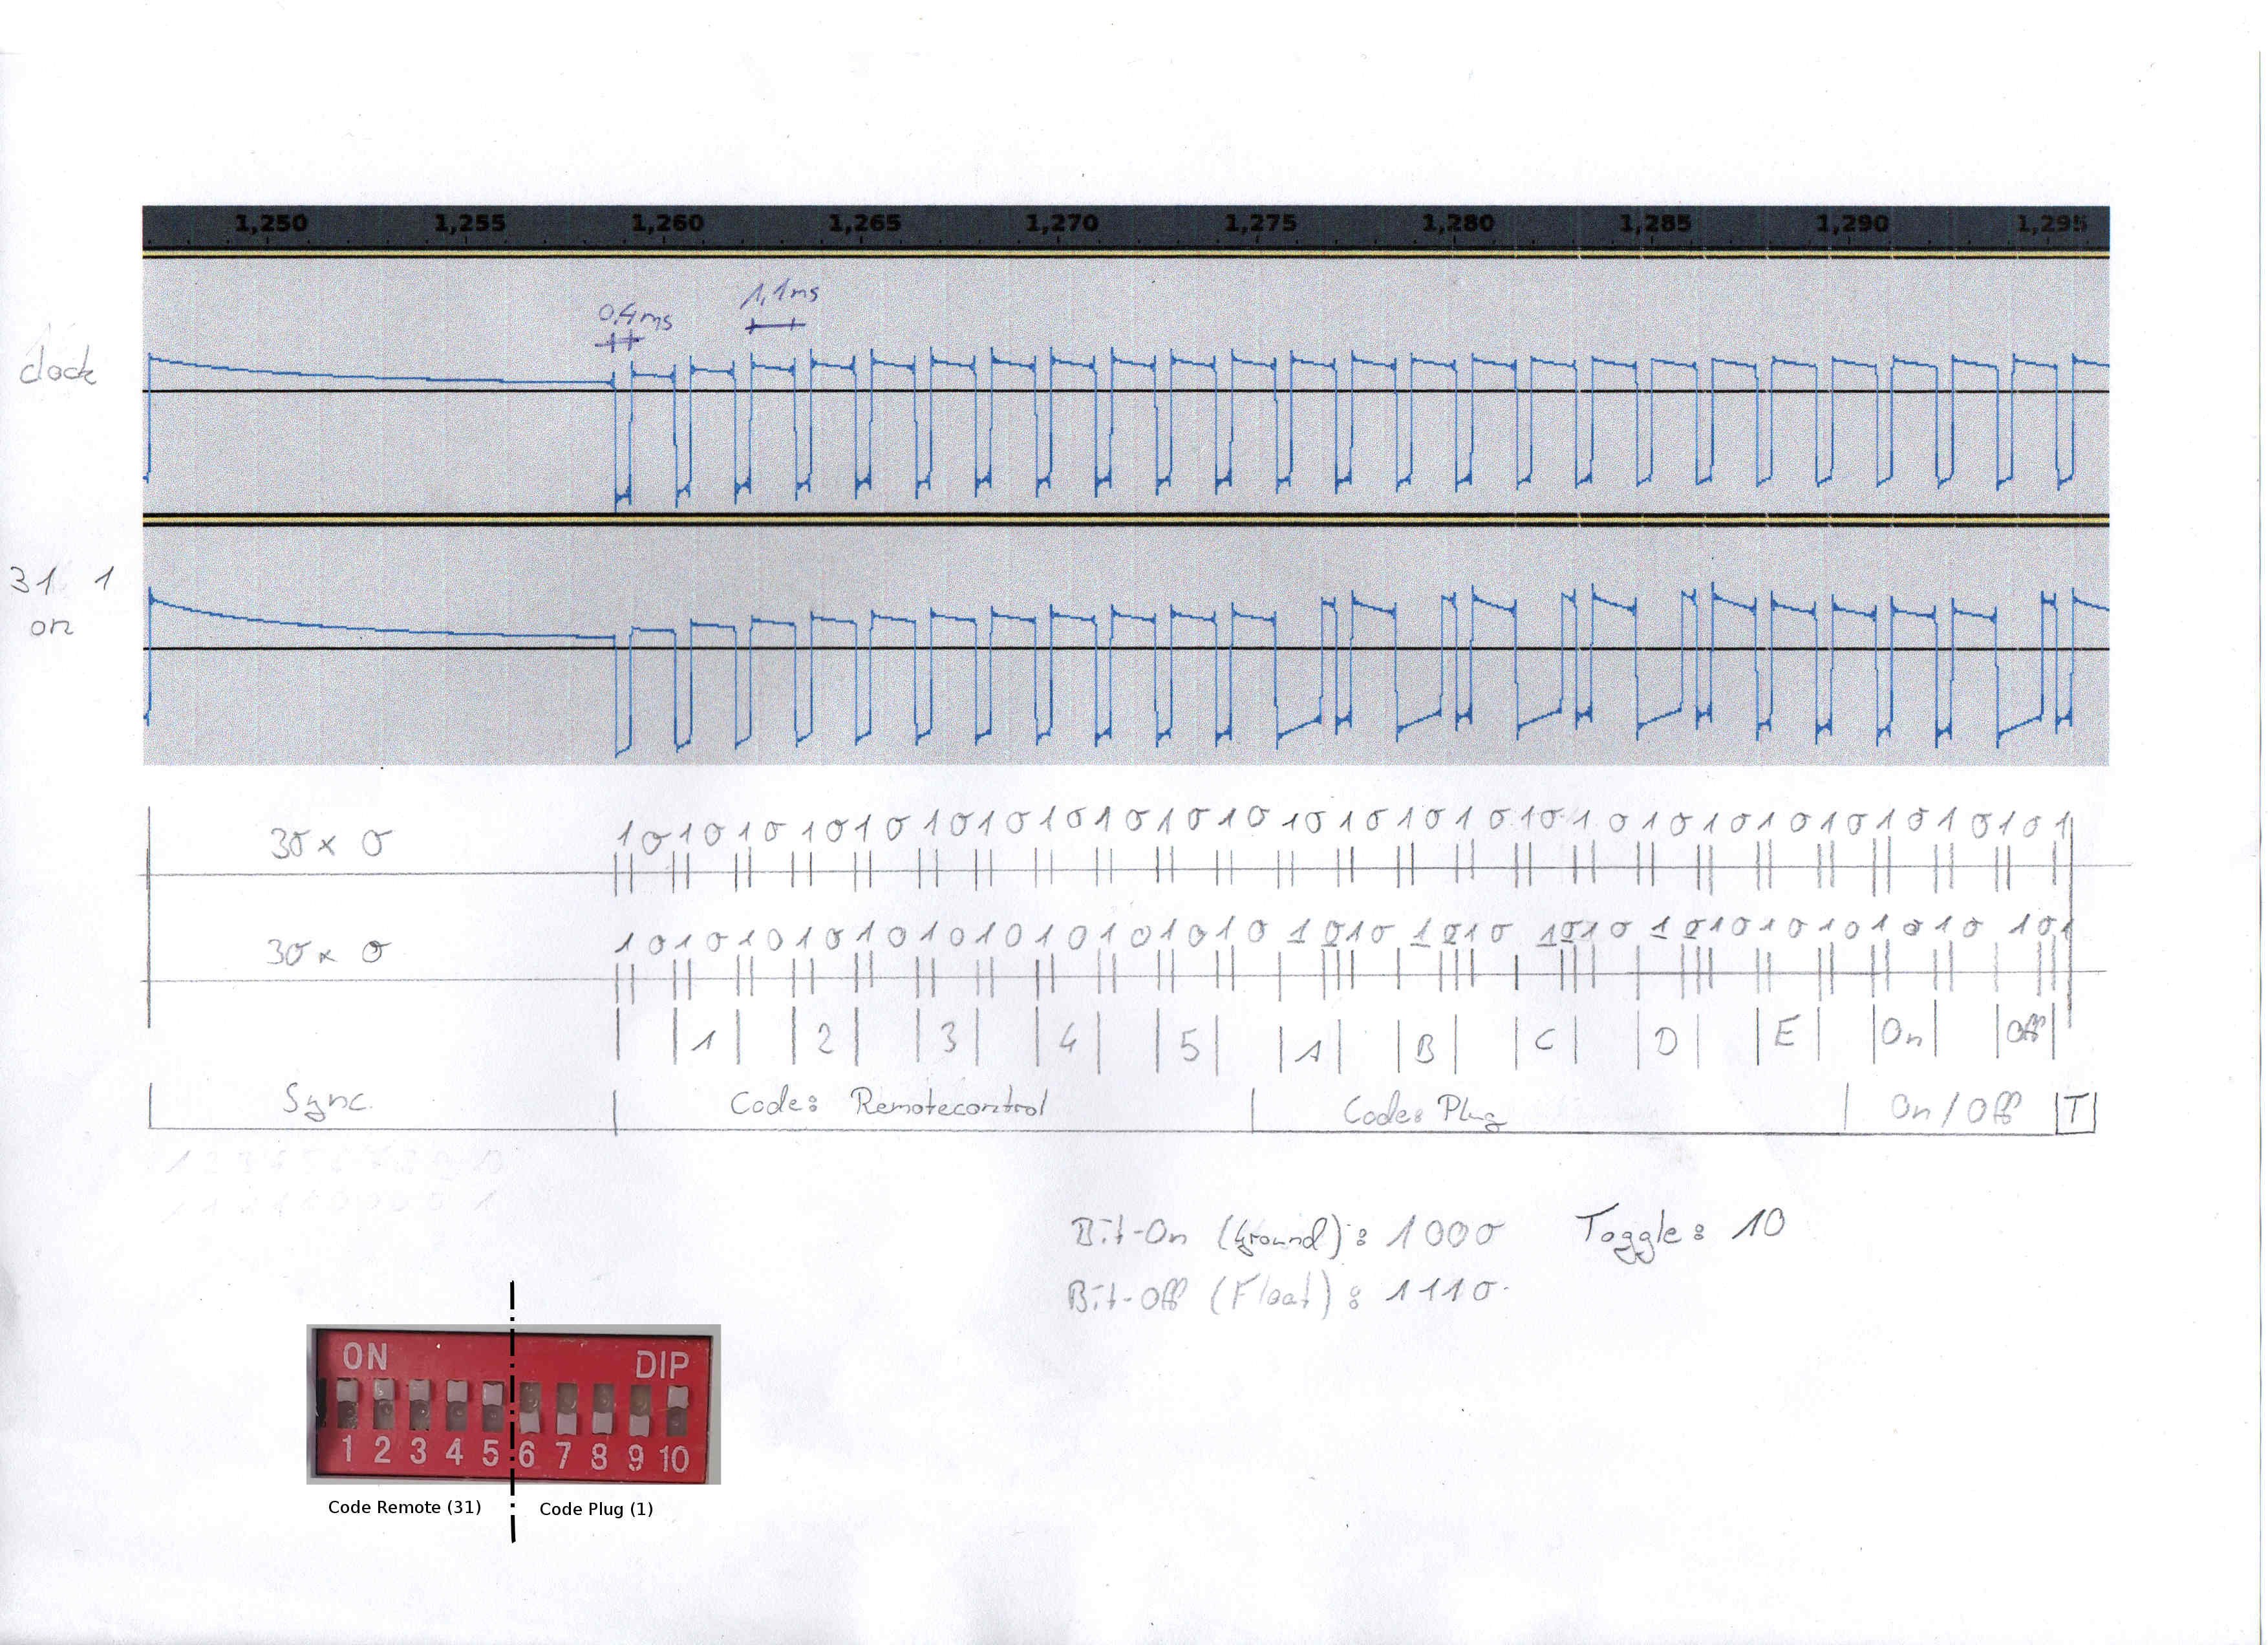 1,250 1,255 1,260 1,265 1,270 1,275 1,280 1,285 1,290 1,295
0,4ms 1,1ms
clock
31 1
on
30 x 0 1 0 1 0 1 0 1 0 1 0 1 0 1 0 1 0 1 0 1 0 1 0 1 0 1 0 1 0 1 0 1 0 1 0 1 0 1 0 1 0 1 0 1 0 1 0 1 0 1
30 x 0 1 0 1 0 1 0 1 0 1 0 1 0 1 0 1 0 1 0 1 0 1 0 1 0 1 0 1 0 1 0 1 0 1 0 1 0 1 0 1 0 1 0 1 0 1 0 1 0 1
1 2 3 4 5 A B C D E On Off
Sync. Code: Remotecontrol Code: Plug On / Off T
Bit-On (Ground): 1000 Toggle: 10
Bit-Off (Float): 1110
ON DIP
1 2 3 4 5 6 7 8 9 10
Code Remote (31) Code Plug (1)